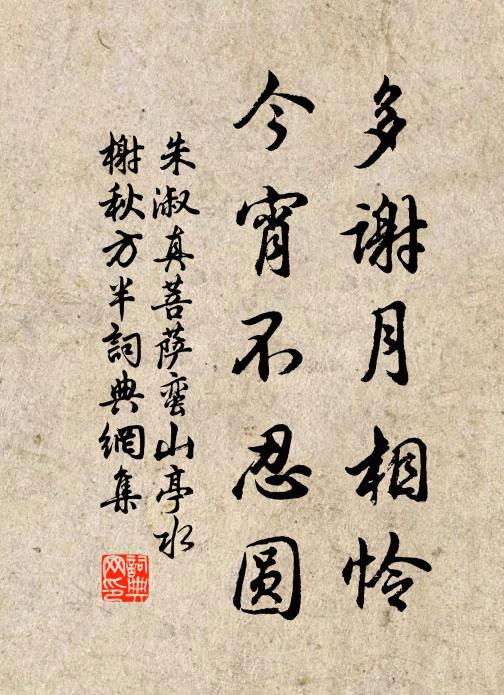 多谢月相怜
今宵不忍圆
朱淑真菩萨蛮山亭水
榭秋方半词典网集
詞典網印